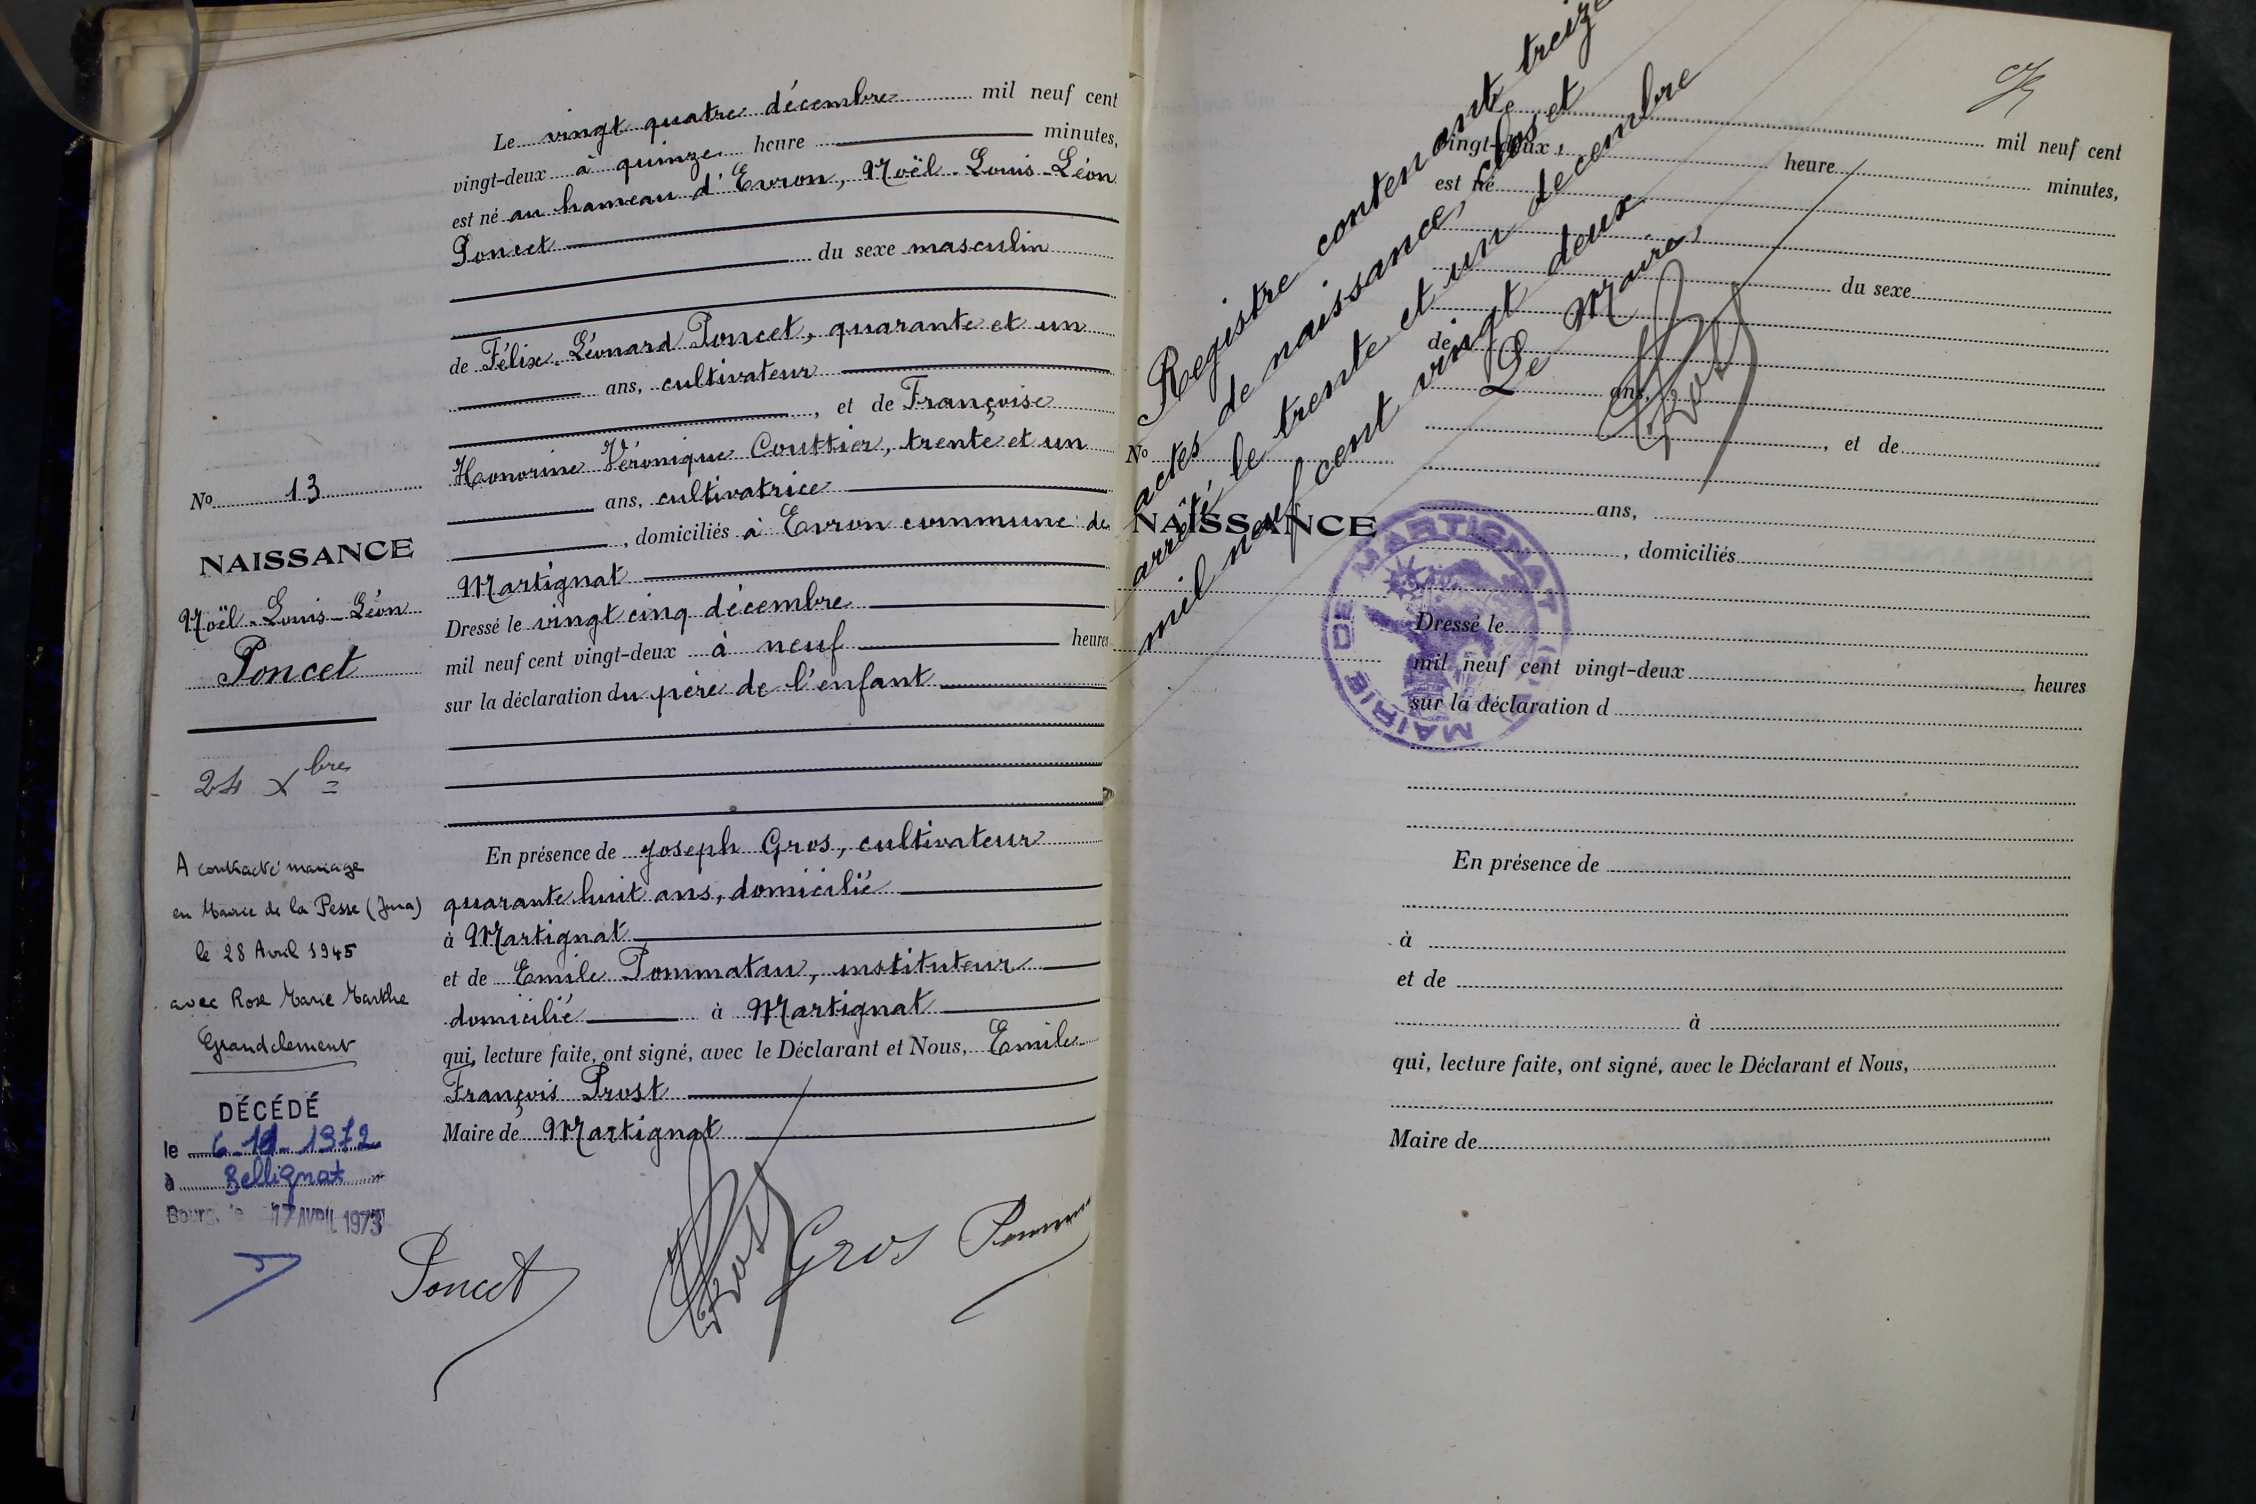 Le vingt quatre décembre mil neuf cent
vingt-deux à quinze heure minutes,
est né au hameau d'Evron, Noël-Louis-Léon
Poncet
du sexe masculin
de Félix-Léonard Poncet, quarante et un
ans, cultivateur
, et de Françoise
Honorine Véronique Couttier, trente et un
ans, cultivatrice
, domiciliés à Evron commune de
Martignat
Dressé le vingt cinq décembre
mil neuf cent vingt-deux à neuf heures
sur la déclaration du père de l'enfant
En présence de Joseph Gros, cultivateur
quarante huit ans, domicilié
à Martignat
et de Emile Pommatau, instituteur
domicilié à Martignat
qui, lecture faite, ont signé, avec le Déclarant et Nous, Emile
François Prost
Maire de Martignat
Poncet Prost Gros
No 13
NAISSANCE
Noël-Louis-Léon
Poncet
24 Xbre
A contracté mariage
en Mairie de la Pesse (Jura)
le 28 Avril 1945
avec Rose Marie Marthe
Grandclement
DÉCÉDÉ
le 6 1972
à Bellignat
Bourg, le 17 AVRIL 1973
Registre contenant treize
actes de naissance, clos et
arrêté le trente et un décembre
mil neuf cent vingt deux
Le Maire,
Prost
mil neuf cent
vingt-deux, heure minutes,
est né
du sexe
de
ans,
, et de
ans,
, domiciliés
No
NAISSANCE
MAIRIE DE MARTIGNAT
Dressé le
mil neuf cent vingt-deux heures
sur la déclaration d
En présence de
à
et de
à
qui, lecture faite, ont signé, avec le Déclarant et Nous,
Maire de